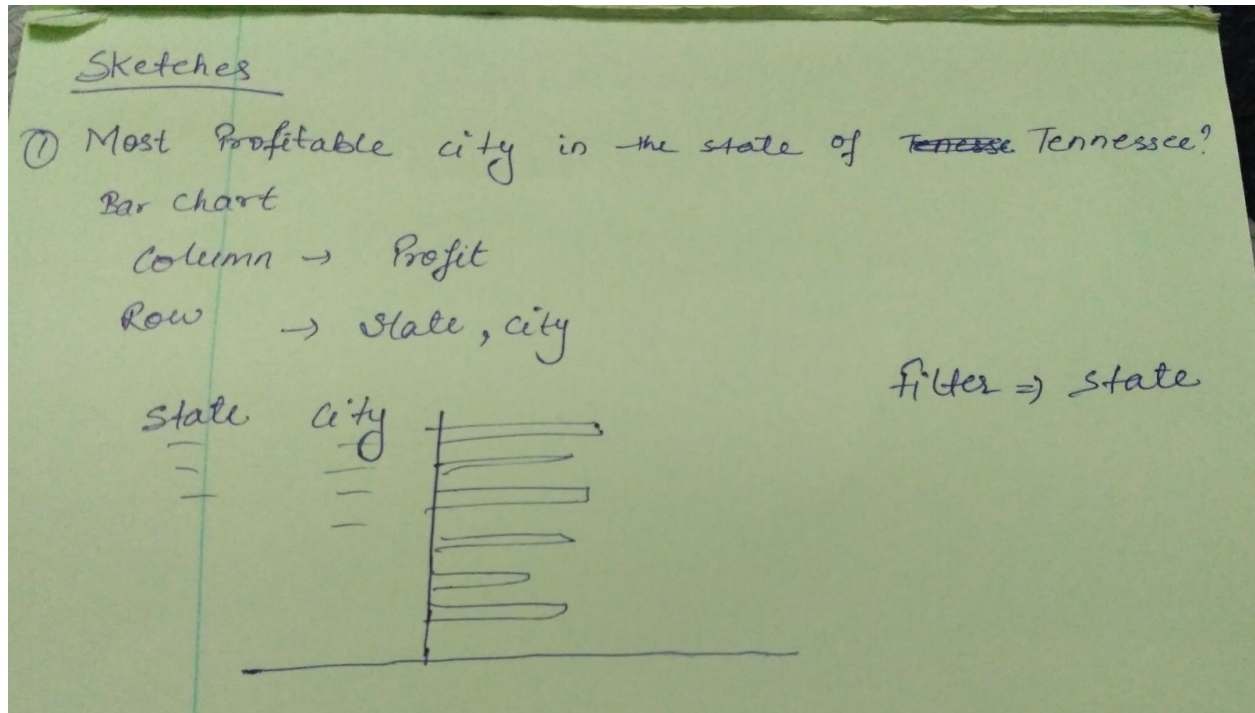 Sketches
① Most Profitable city in the state of Tenesse Tennessee?
Bar chart
Column → Profit
Row → State, city
filter ⇒ state
State City